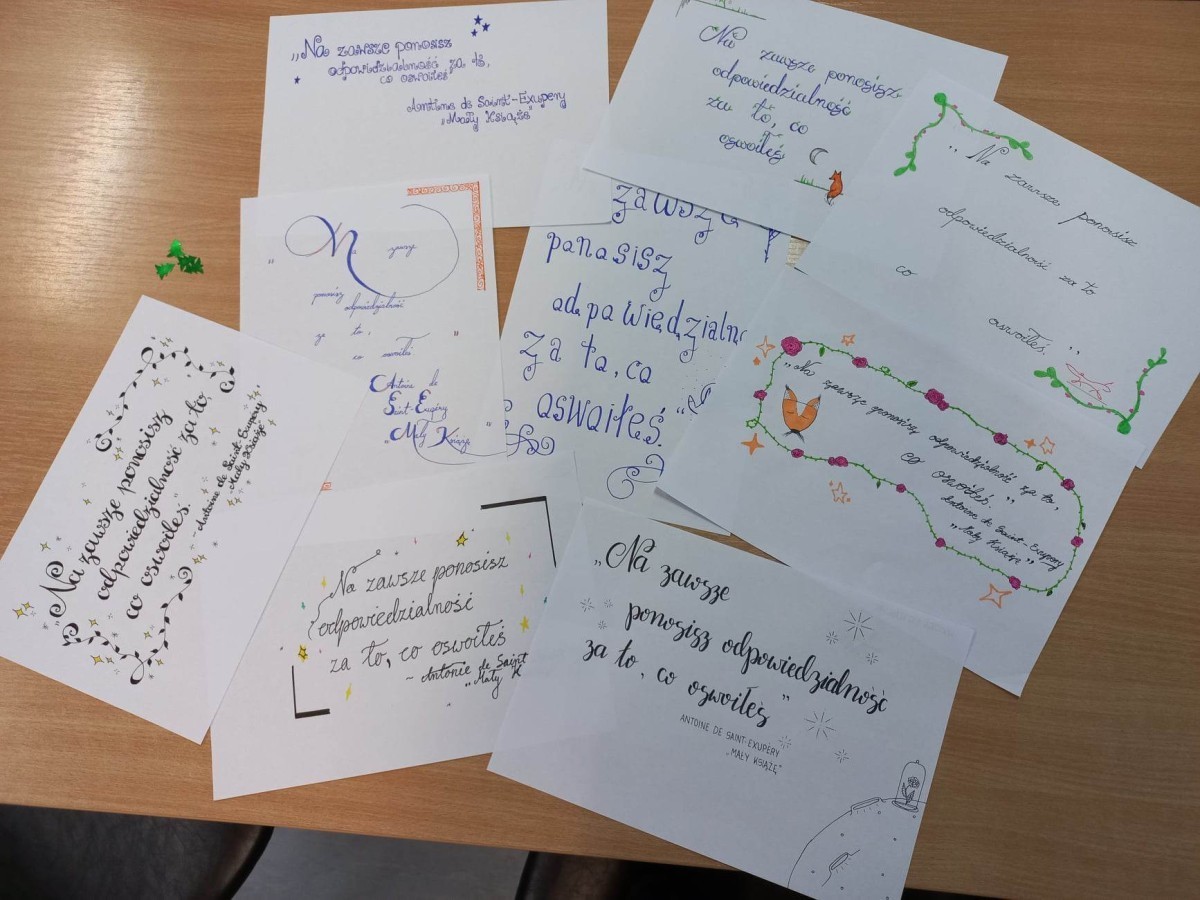 „Na zawsze ponosisz
odpowiedzialność za to,
co oswoiłeś"
Antoine de Saint-Exupery
„Mały Książę"
Na
zawsze ponosisz
odpowiedzialność
za to, co
oswoiłeś
„Na zawsze ponosisz
odpowiedzialność za to
co
oswoiłeś.
„ Na zawsze
ponosisz odpowiedzialność
za to, "
co oswoiłeś
Antoine de
Saint-Exupéry
„Mały Książę
zawsze
ponosisz
odpowiedzialn
za to, co
oswoiłeś."
„Na zawsze ponosisz odpowiedzialność za to,
co oswoiłeś. "
Antoine de Saint-Exupery
„Mały Książę
„Na zawsze ponosisz
odpowiedzialność za to,
co oswoiłeś."
~ Antoine de Saint Exupery
„Mały Książę"
Na zawsze ponosisz
odpowiedzialność
za to, co oswoiłeś
~ Antonie de Saint
„Mały K
„Na zawsze
ponosisz odpowiedzialność
za to, co oswoiłeś "
ANTOINE DE SAINT-EXUPERY
„MAŁY KSIĄŻĘ"